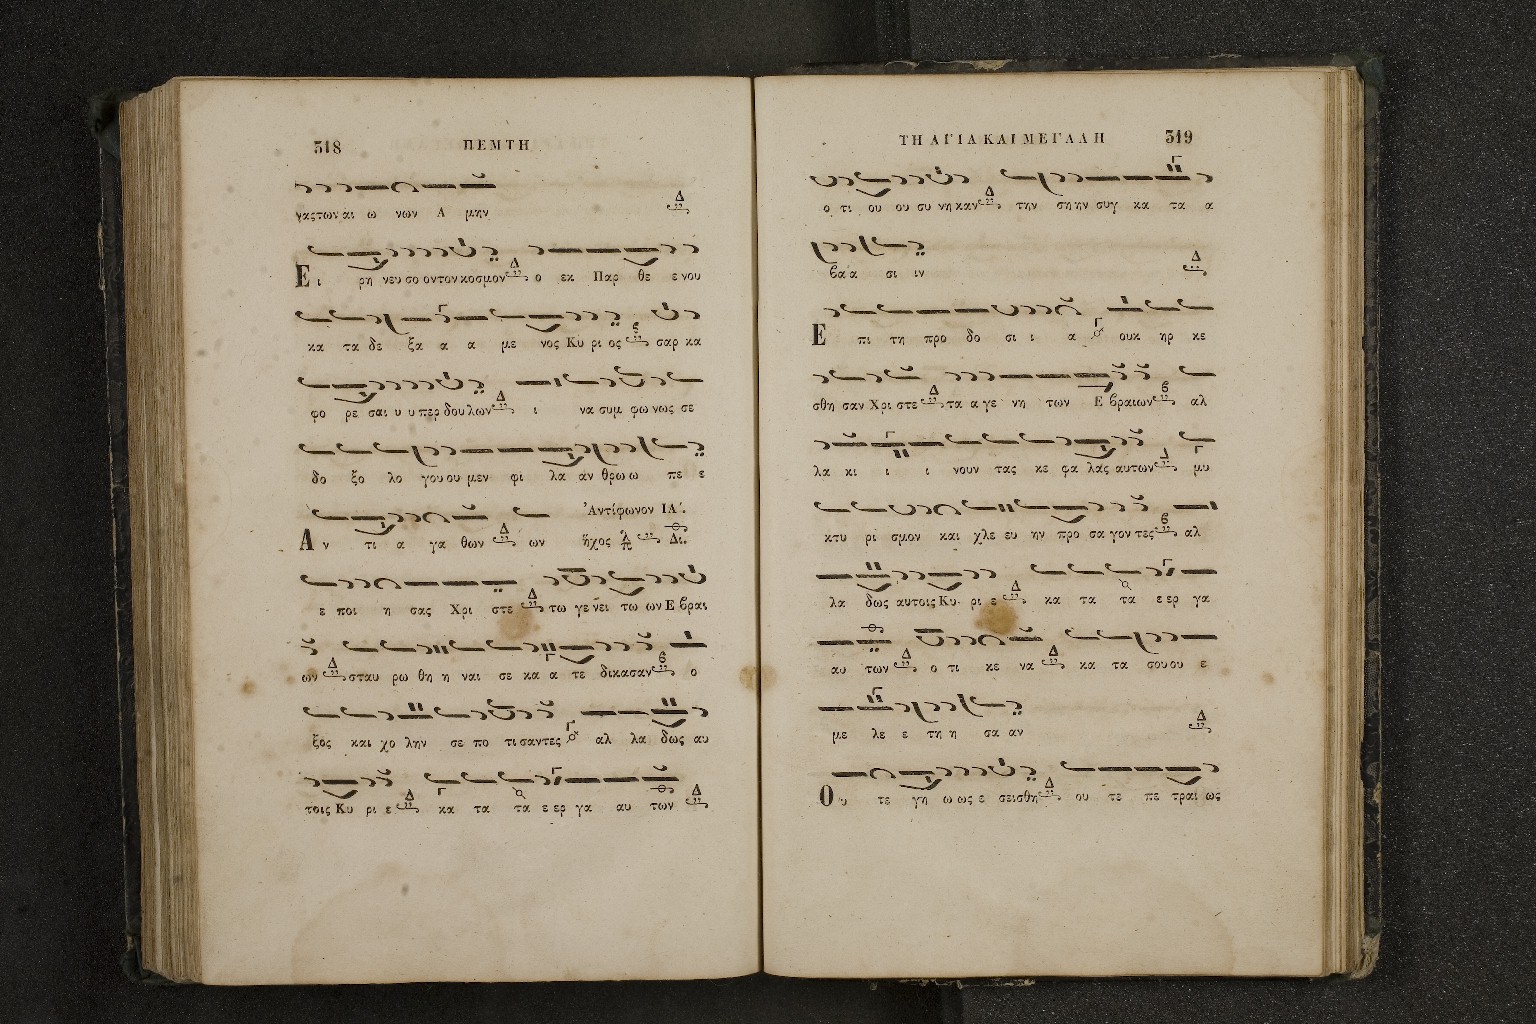 318 ΠΕΜΤΗ
γας των αι ω νων Α μην Δ
Ει ρη νευ σο ον τον κοσμον Δ ο εκ Παρ θε ε νου
κα τα δε ξα α α με νος Κυ ρι ος ς σαρ κα
φο ρε σαι υ υ περ δου λων Δ ι να συμ φω νως σε
δο ξο λο γου ου μεν φι λα αν θρω ω πε ε
Ἀντίφωνον ΙΑ΄.
Αν τι α γα θων Δ ων ἦχος Δι.
ε ποι η σας Χρι στε Δ τω γε νει τω ων Ε βραι
ων Δ σταυ ρω θη η ναι σε κα α τε δικασαν β ο
ξος και χο λην σε πο τι σαντες Γ αλ λα δως αυ
τοις Κυ ρι ε Δ κα τα τα ε ερ γα αυ των Δ
ΤΗ ΑΓΙΑ ΚΑΙ ΜΕΓΑΛΗ 319
ο τι ου ου συ νη καν Δ την ση ην συγ κα τα α
βα α σι ιν Δ
Ε πι τη προ δο σι ι α Γ ουκ ηρ κε
σθη σαν Χρι στε Δ τα α γε νη των Ε βραιων β αλ
λα κι ι ι νουν τας κε φα λας αυτων Δ μυ
κτυ ρι σμον και χλε ευ ην προ σα γον τες β αλ
λα δως αυτοις Κυ ρι ε Δ κα τα τα ε ερ γα
αυ των Δ ο τι κε να Δ κα τα σου ου ε
με λε ε τη η σα αν Δ
Ου τε γη ω ως ε σεισθη Δ ου τε πε τραι ως